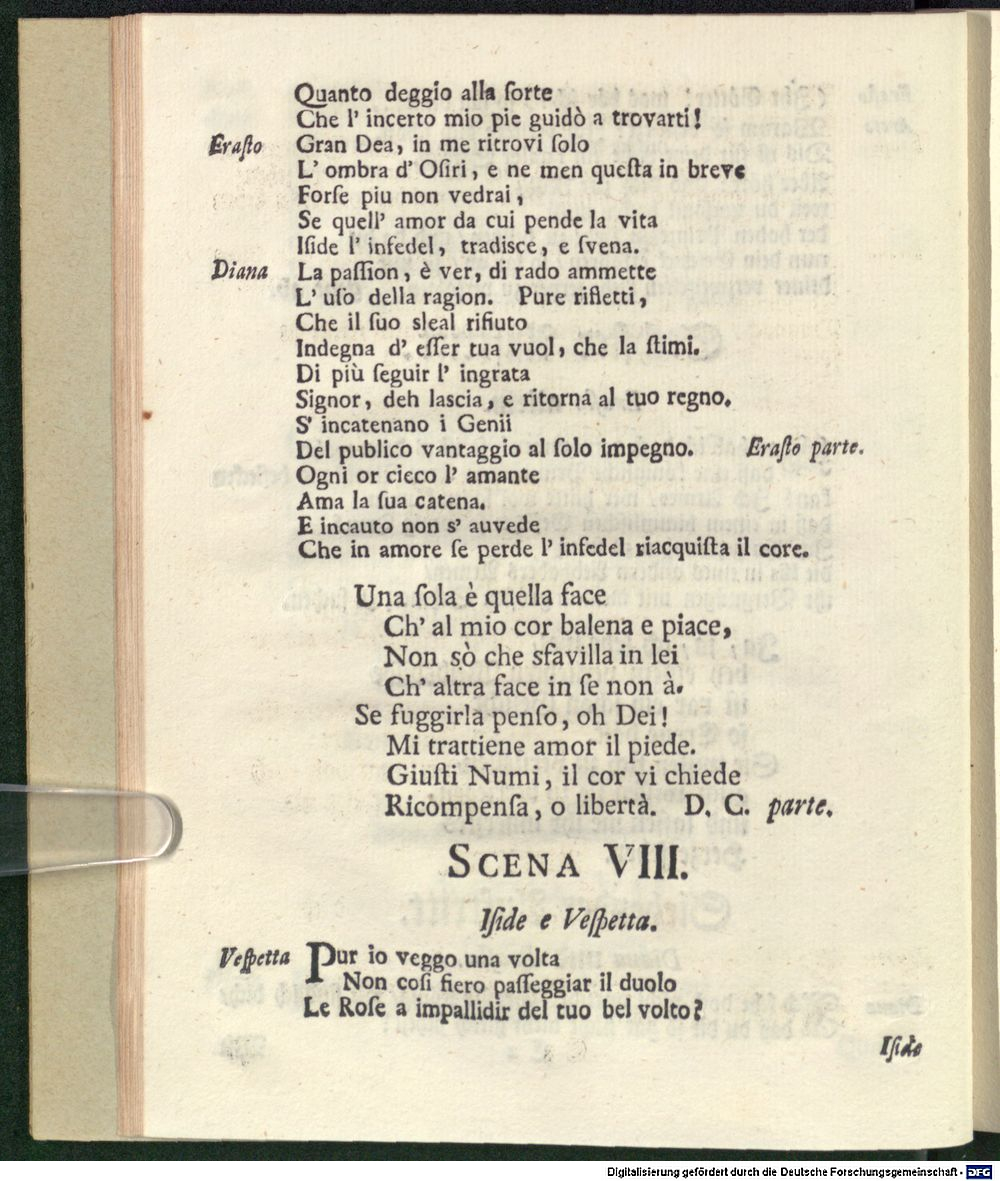 Quanto deggio alla ſorte
Che l' incerto mio pie guidò a trovarti!
Eraſto Gran Dea, in me ritrovi ſolo
L' ombra d' Oſiri, e ne men queſta in breve
Forſe piu non vedrai,
Se quell' amor da cui pende la vita
Iſide l' infedel, tradisce, e ſvena.
Diana La paſſion, è ver, di rado ammette
L' uſo della ragion. Pure rifletti,
Che il ſuo sleal rifiuto
Indegna d' eſſer tua vuol, che la ſtimi.
Di più ſeguir l' ingrata
Signor, deh lascia, e ritorna al tuo regno.
S' incatenano i Genii
Del publico vantaggio al ſolo impegno. Eraſto parte.
Ogni or cieco l' amante
Ama la ſua catena.
E incauto non s' auvede
Che in amore ſe perde l' infedel riacquiſta il core.
Una ſola è quella face
Ch' al mio cor balena e piace,
Non sò che sfavilla in lei
Ch' altra face in ſe non à.
Se fuggirla penſo, oh Dei!
Mi trattiene amor il piede.
Giuſti Numi, il cor vi chiede
Ricompenſa, o libertà. D. C. parte.
SCENA VIII.
Iſide e Veſpetta.
Veſpetta Pur io veggo una volta
Non coſi fiero paſſeggiar il duolo
Le Roſe a impallidir del tuo bel volto?
Iſide
Digitalisierung gefördert durch die Deutsche Forschungsgemeinschaft - DFG